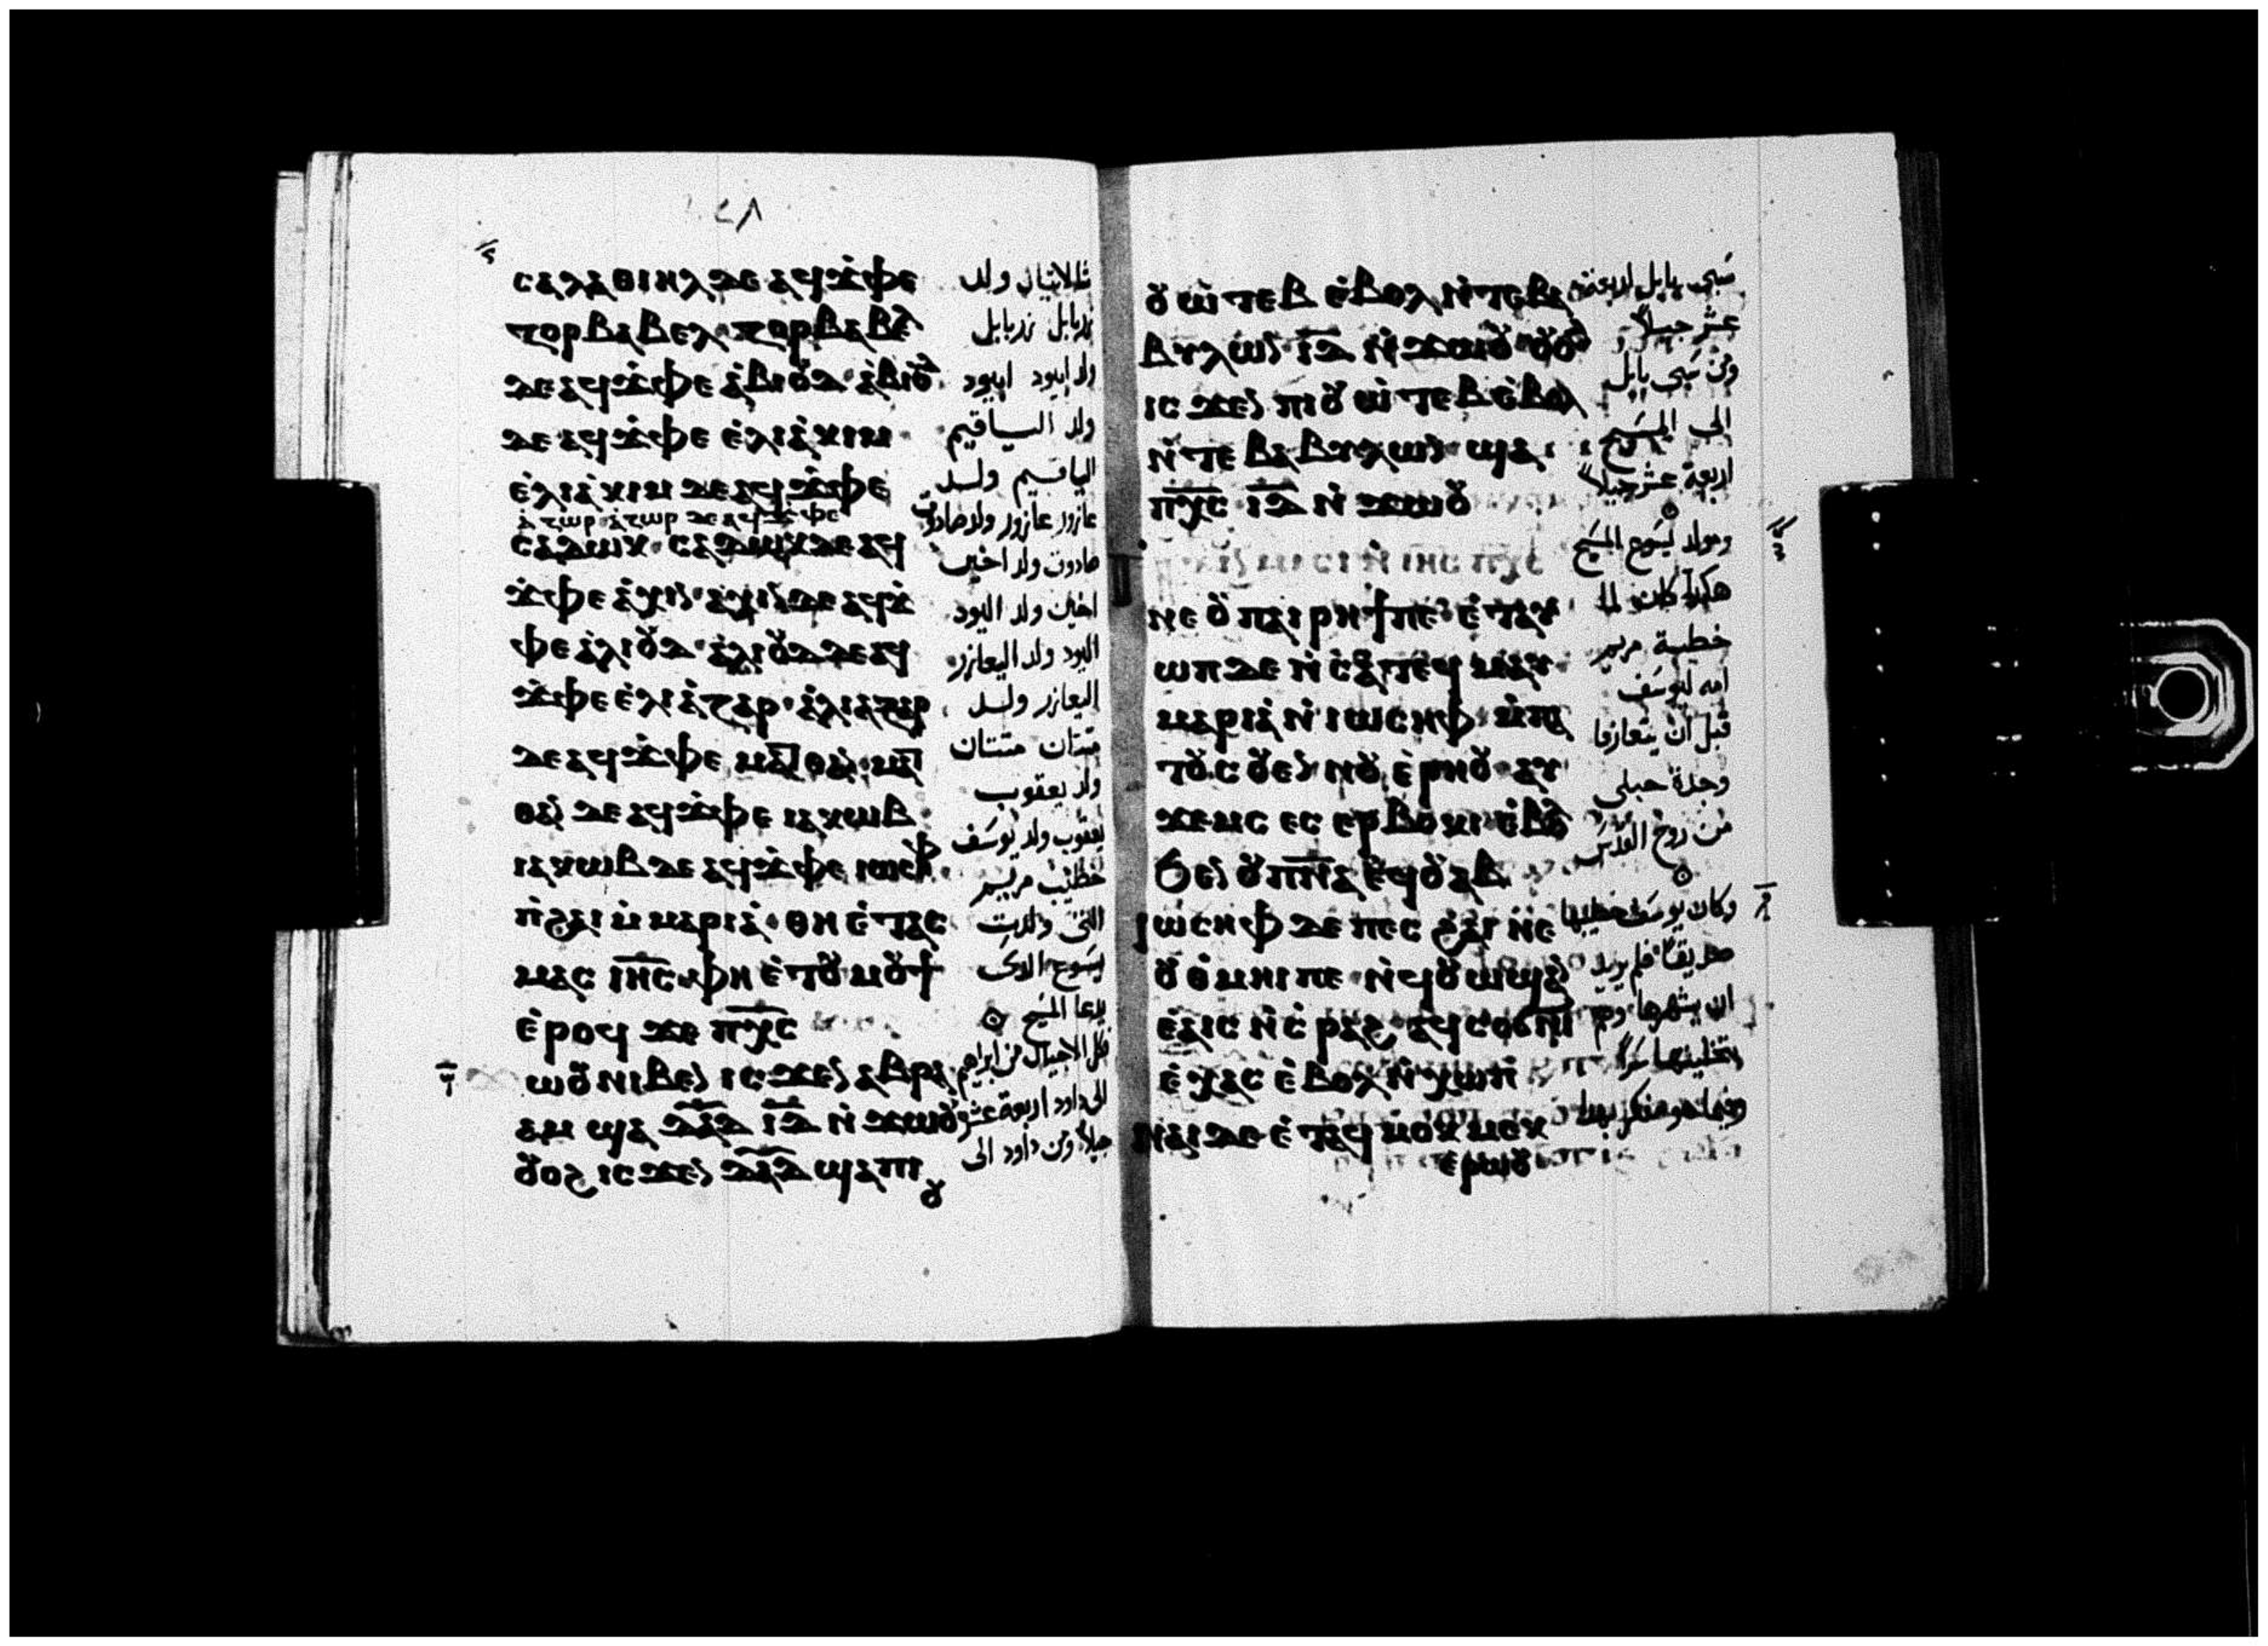 ⲥⲁⲗⲁⲑⲓⲏⲗ ⲇⲉ ⲁϥϫ̀ⲫⲉ
ⲍⲟⲣⲃⲁⲃⲉⲗ· ⲍⲟⲣⲃⲁⲃⲉⲗ
ⲇⲉ ⲁϥϫ̀ⲫⲉ ⲁ̀ⲃⲓⲟⲩⲇ· ⲁ̀ⲃⲓⲟⲩⲇ
ⲇⲉ ⲁϥϫ̀ⲫⲉ ⲉ̀ⲗⲓⲁ̀ⲕⲓⲙ
ⲉ̀ⲗⲓⲁ̀ⲕⲓⲙ ⲇⲉ ⲁϥϫ̀ⲫⲉ
ⲁ̀ⲍⲱⲣ ⲁ̀ⲍⲱⲣ ⲇⲉ ⲁϥϫ̀ⲫⲉ
ⲥⲁⲇⲱⲕ· ⲥⲁⲇⲱⲕ ⲇⲉ ⲁϥ
ϫ̀ⲫⲉ ⲁ̀ⲭⲓⲛ· ⲁ̀ⲭⲓⲛ ⲇⲉ ⲁϥϫ̀
ⲫⲉ ⲉ̀ⲗⲓⲟⲩⲇ· ⲉ̀ⲗⲓⲟⲩⲇ ⲇⲉ ⲁϥ
ϫ̀ⲫⲉ ⲉ̀ⲗⲓⲁ̀ⲍⲁⲣ· ⲉ̀ⲗⲓⲁⲍⲁⲣ
ⲇⲉ ⲁϥϫ̀ⲫⲉ ⲙⲁⲧⲑⲁⲛ· ⲙⲁⲧ
ⲑⲁⲛ ⲇⲉ ⲁϥϫ̀ⲫⲉ ⲓⲁⲕⲱⲃ
ⲓⲁⲕⲱⲃ ⲇⲉ ⲁϥϫ̀ⲫⲉ ⲓⲱⲥⲏⲫ
ⲡ̀ϩⲁⲓ ⲙ̀ⲙⲁⲣⲓⲁ̀· ⲑⲏ ⲉ̀ⲧⲁⲥ
ⲙⲁⲥ ⲓⲏ̅ⲥ̅ ⲫⲏ ⲉ̀ⲧⲟⲩⲙⲟⲩϯ
ⲉ̀ⲣⲟϥ ϫⲉ ⲡⲭ̅ⲥ̅
ⲱⲟⲩ ⲛⲓⲃⲉⲛ ⲓⲥϫⲉⲛ ⲁⲃⲣⲁ
ⲁⲙ ϣⲁ ⲇ̅ⲁ̅ⲇ̅ ⲓ̅ⲇ̅ ⲛ̀ϫⲱⲟⲩ
ⲟⲩⲟϩ ⲓⲥϫⲉⲛ ⲇ̅ⲁ̅ⲇ̅ ϣⲁ ⲡⲓ
ⲟⲩ
ولد
زربابل زربابل
ولد ابيود ابيود
ولد الياقيم
الياقيم ولد
عازور عازور ولد صادوق
صادوق ولد اخين
اخين ولد اليود
اليود ولد اليعازر
اليعازر ولد
متتان متتان
ولد يعقوب
يعقوب ولد يوسف
خطيب مريم
التى ولدت
يسوع الدى
يدعا المسيح
فكل الاجيال من ابراهيم
الى داود اربعة عشر
جيلا ومن داود الى
ⲟⲩⲱ̀ⲧⲉⲃ ⲉ̀ⲃⲟⲗ ⲛ̀ⲧⲉ ⲃⲁ
ⲃⲩⲗⲱⲛ ⲓ̅ⲇ̅ ⲛ̀ϫⲱⲟⲩ ⲟⲩⲟϩ
ⲓⲥϫⲉⲛ ⲡⲓⲟⲩⲱ̀ⲧⲉⲃ ⲉ̀ⲃⲟⲗ
ⲛ̀ⲧⲉ ⲃⲁⲃⲩⲗⲱⲛ ϣⲁ
ⲡⲭ̅ⲥ̅ ⲓ̅ⲇ̅ ⲛ̀ϫⲱⲟⲩ
ⲙⲓⲥⲓ ⲛ̀ⲓⲏⲥ ⲡⲭⲥ
ⲛⲉ ⲟⲩⲡⲁⲓⲣⲏϯ ⲡⲉ· ⲉ̀ⲧⲁⲩ
ⲱⲡ ⲇⲉ ⲛ̀ⲥⲁ ⲧⲉϥⲙⲁⲩ
ⲙⲁⲣⲓⲁ̀ ⲛ̀ⲓⲱⲥⲏⲫ ⲙ̀ⲡⲁ
ⲧⲟⲩⲥⲟⲩⲉⲛ ⲛⲟⲩ ⲉ̀ⲣⲏⲟⲩ ⲁⲩ
ϫⲉⲙⲥ ⲉⲥ ⲉⲣⲃⲟⲕⲓ ⲉ̀ⲃⲟⲗ
ϧⲉⲛ ⲟⲩⲡ̅ⲛ̅ⲁ̅ ⲉϥⲟⲩⲁⲃ
ⲓⲱⲥⲏⲫ ⲇⲉ ⲡⲉⲥ ϩⲁⲓ ⲛⲉ
ⲟⲩⲑ̀ⲙⲏⲓ ⲡⲉ ⲛ̀ϥⲟⲩⲱϣ ⲁⲛ
ⲉ̀ⲁⲓⲥ ⲛ̀ⲥ̀ⲣⲁϩ ⲁϥⲥⲟϭⲛⲓ
ⲉ̀ⲭⲁⲥ ⲉ̀ⲃⲟⲗ ⲛ̀ⲭⲱⲡ
ⲛⲁⲓ ⲇⲉ ⲉ̀ⲧⲁϥⲙⲟⲕⲙⲉⲕ
ⲉⲣⲱⲟⲩ
سبى بابل اربعة
عشر جيلا
ومن سبى بابل
الى المسيح
اربعة عشر جيلا
ومولد يسوع المسيح
هكدا كان لما
خطبة مريم
امه ليوسف
قبل ان يتعارفا
وجدة حبلى
من روح القدس
وكان يوسف خطيبها
صديقا فلم يريد
ان يشهرها وهم
بتخليتها سرا
وفيما هو متفكر بهدا